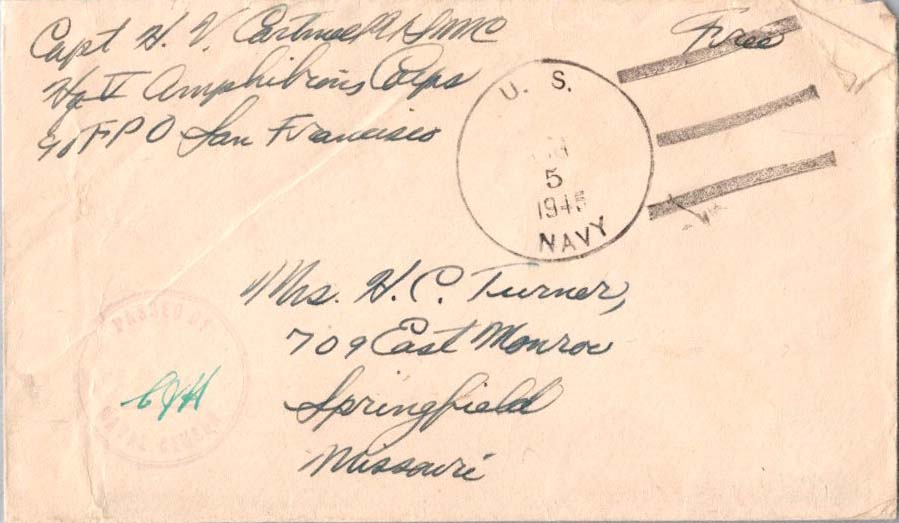 Capt H. V. Cartmell USMC
Hq V Amphibious Corps
c/o FPO San Francisco
Free
U. S.
5
1945
NAVY
Mrs. H. C. Turner,
709 East Monroe
Springfield
Missouri
PASSED BY
NAVAL CENSOR